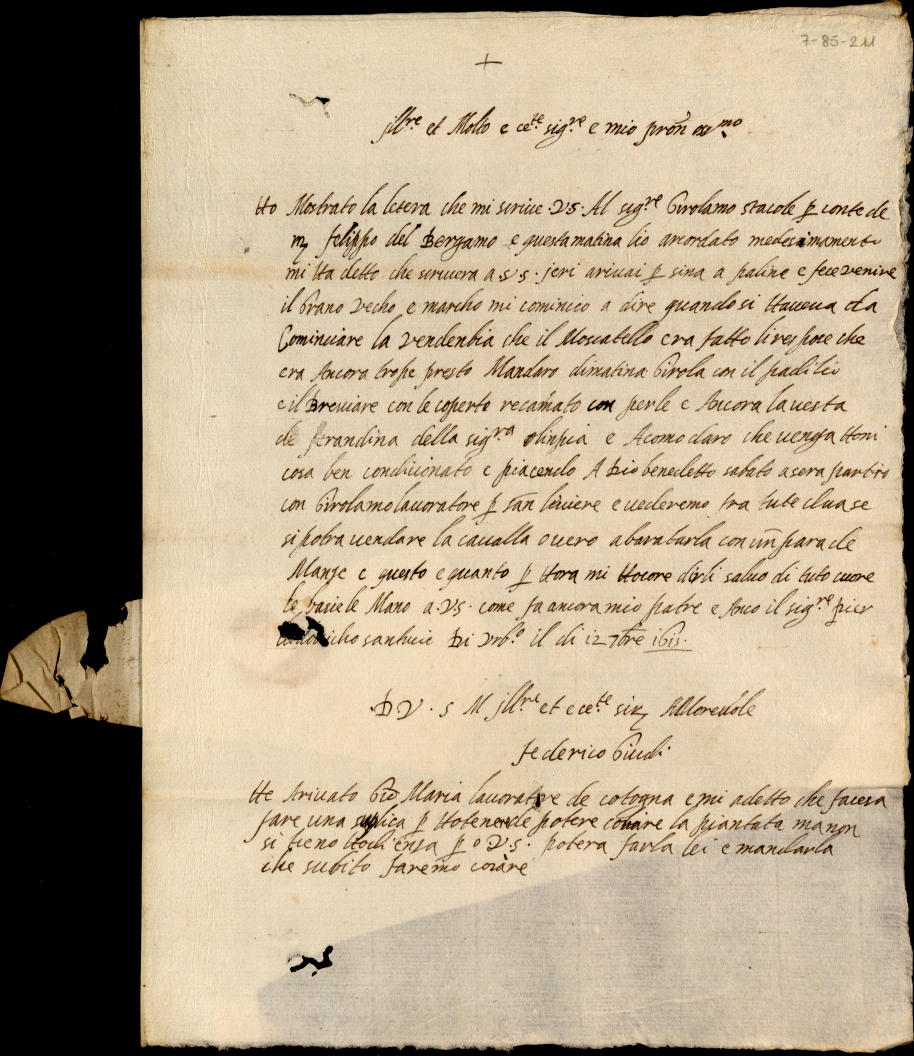 7-85-211
+
Jll.re et Molto e ce.te sig.re e mio pron oss.mo
Ho Mostrato la letera che mi scrive .V.S. Al sig.re Girolamo stacole p conte de
m felippo del Bergamo e questa matina lio arcordato medesimamente
mi Ha detto che scrivera a .S.V.S. jeri arivai p sina a paline e fece venire
il Grano vecho e marcho mi cominico a dire quando si Haveva da
Cominciare la vendenbia che il Moscatello era fatto li respose che
era Ancora trope presto Mandaro dimatina Girola con il padilio
e il Breviare con le coperte recamato con perle e Ancora la vesta
de ferandina della sig.ra olinpia e Acomodaro che venga Honi
cosa ben condicionato e piacendo A Dio benedetto sabato a sera partiro
con Girolamo lavoratore p san liviere e vederemo fra tute dua se
si potra vendare la cavalla overo abaratarla con un para de
Manze e questo e quanto p Hora mi Hocore dirli salvo di tuto cuore
le basie le Mano a .V.S. come fa ancora mio patre e Anco il sig.re pier
santucie Di Urb.o il di 12 7bre 1615.
.D V . S M Jll.re et ecce.te Amorevole
federico Giudi
He Arivato Gio Maria lavoratore de cologna e mi a detto che facesa
fare una suplica p Hotenere de potere coiare la piantata ma non
si tieno Hodienza p o V.S. potera farla lei e mandarla
che subito faremo coiare